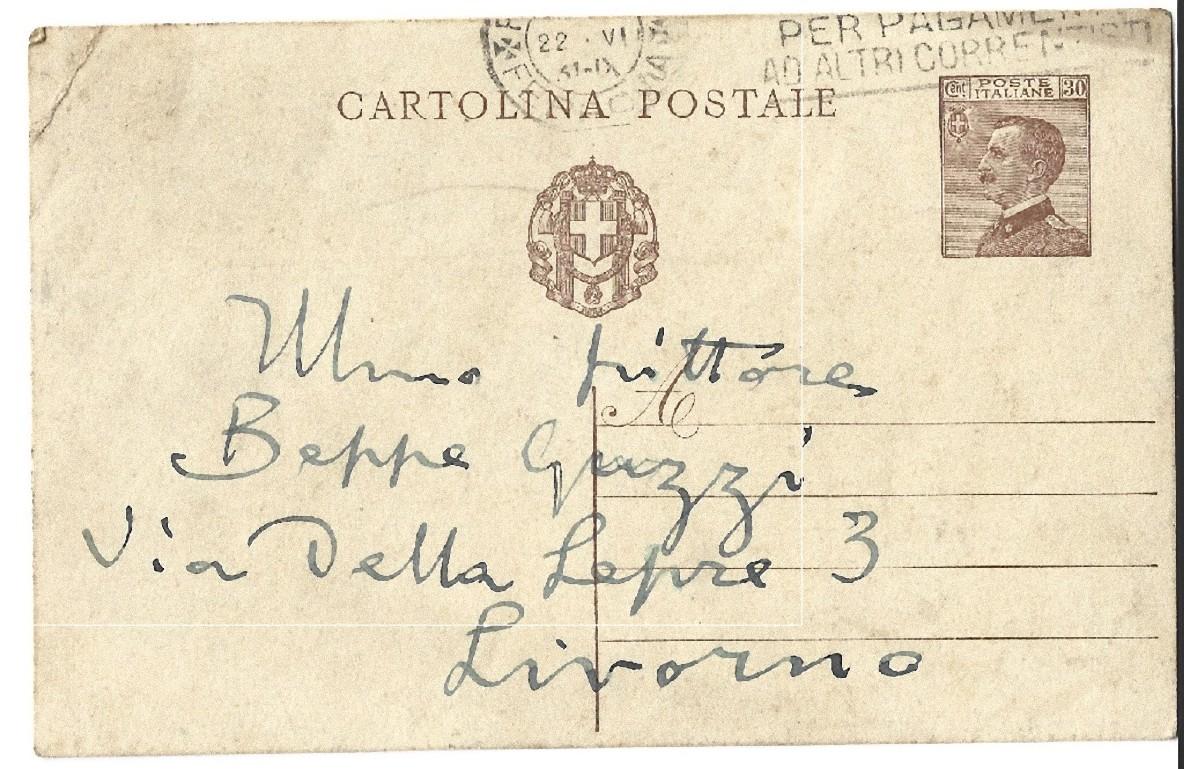 22 · VI
31-IX
PER PAGAMEN
AD ALTRI CORRENTISTI
CARTOLINA POSTALE
Cent. POSTE ITALIANE 30
Illmo pittore
A
Beppe Guzzi
Via Della Lepre 3
Livorno